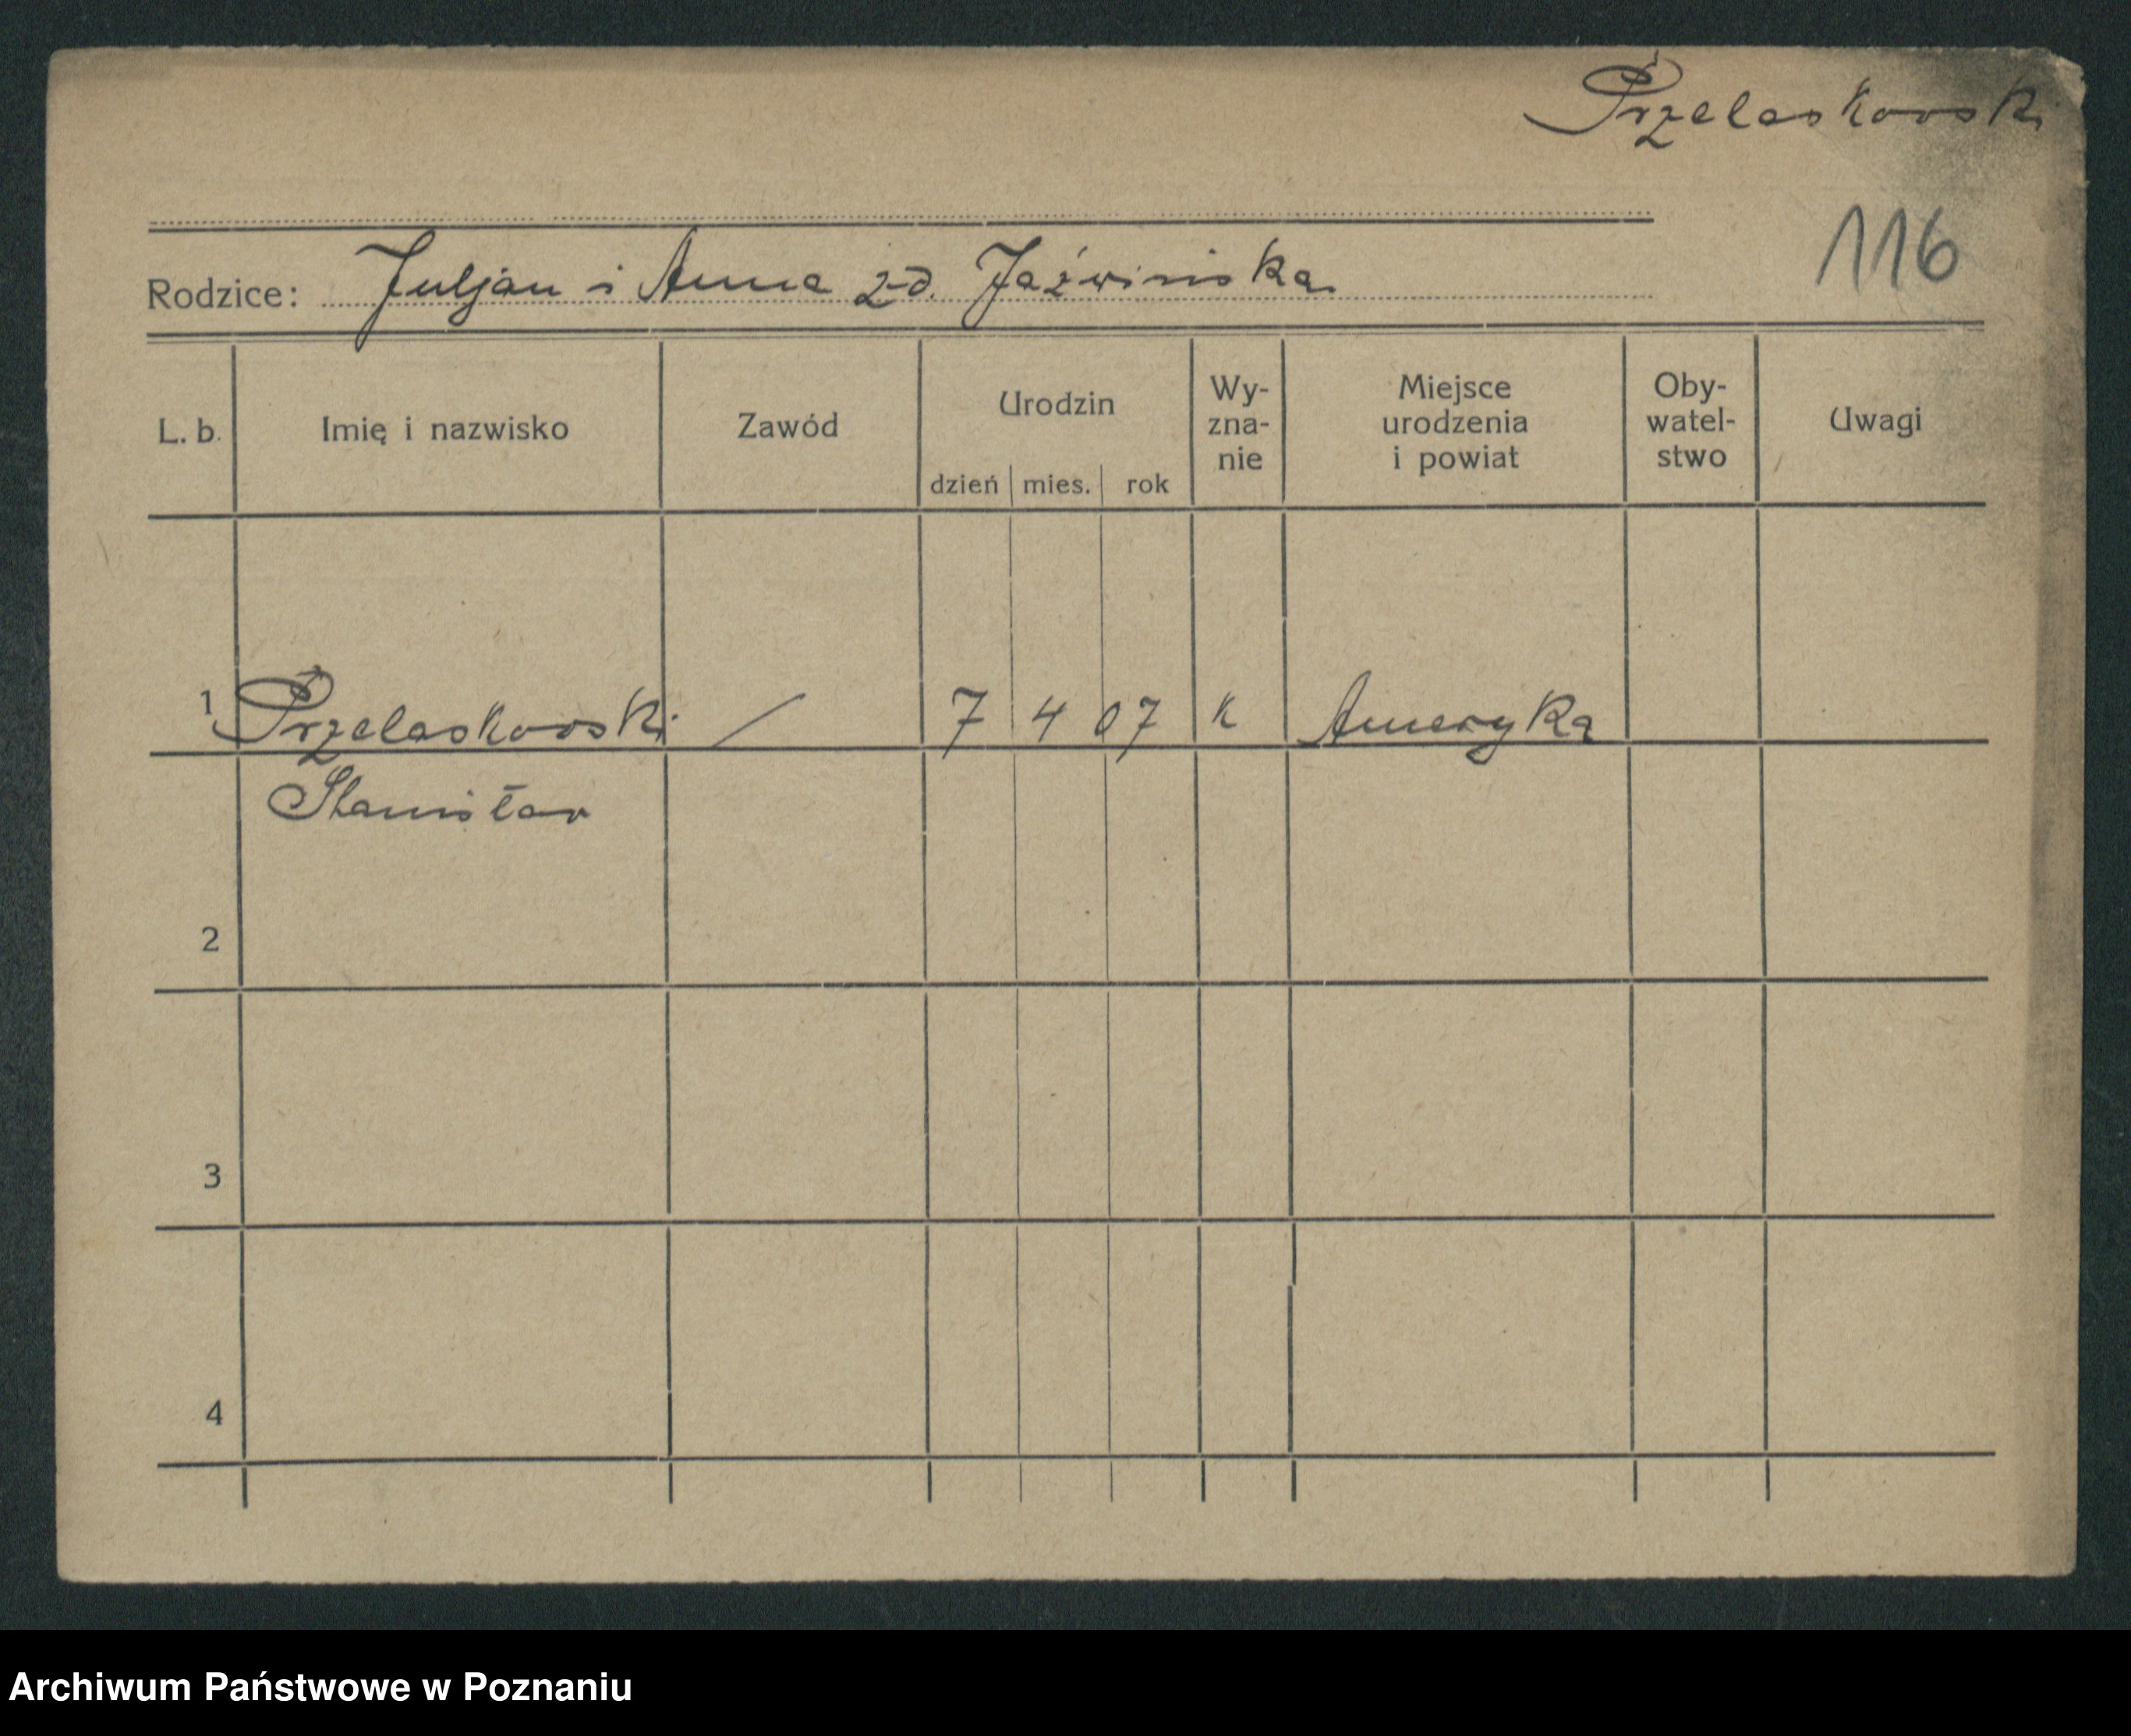 Przelaskowski
116
Rodzice: Juljan i Anna zd. Jaźwińska
L. b. Imię i nazwisko Zawód Urodzin dzień mies. rok Wy-zna-nie Miejsce urodzenia i powiat Oby-watel-stwo Uwagi
1 Przelaskowski / 7 4 07 k Ameryka
Stanisław
2
3
4
Archiwum Państwowe w Poznaniu